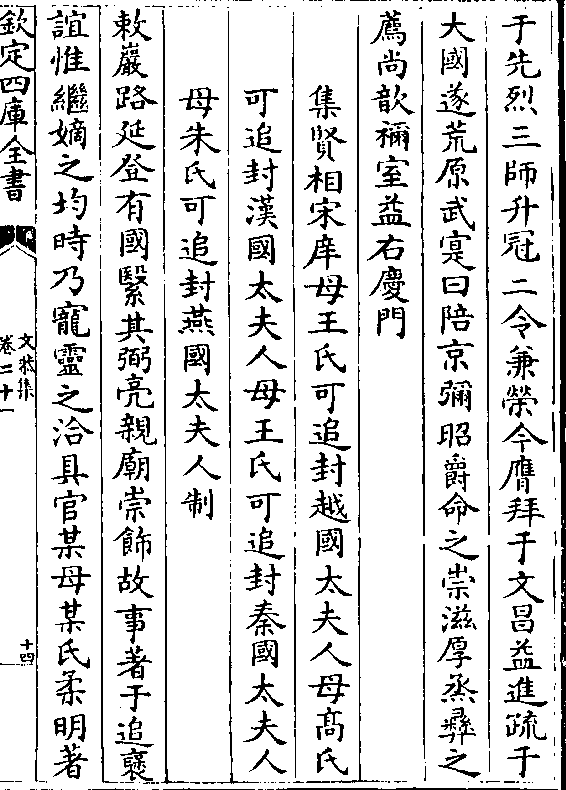 于先烈三師升冠二令兼榮今膺拜于文昌益進疏于
大國遂荒原武寔曰陪京彌昭爵命之崇滋厚烝彝之
薦尚歆禰室益右慶門
集賢相宋庠母王氏可追封越國太夫人母高氏
可追封漢國太夫人母王氏可追封秦國太夫人
母朱氏可追封燕國太夫人制
敕巖路延登有國繄其弼亮親廟崇飾故事著于追褒
誼惟繼嫡之均時乃寵靈之洽具官某母某氏柔明著
欽定四庫全書
文恭集
卷二十一
十四